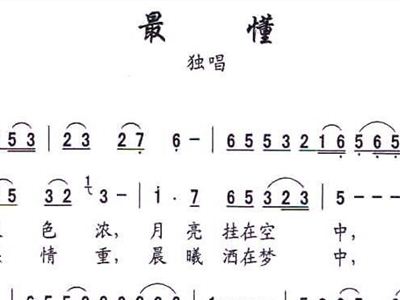 最 懂
独唱
5 3 | 2 3 2 7 6 - | 6 5 5 3 2 1 6 5 6 5
5 3 2 3 - | i · 7 6 5 5 3 2 3 5 - -
色 浓, 月 亮 挂在空 中,
情 重, 晨 曦 洒在梦 中,